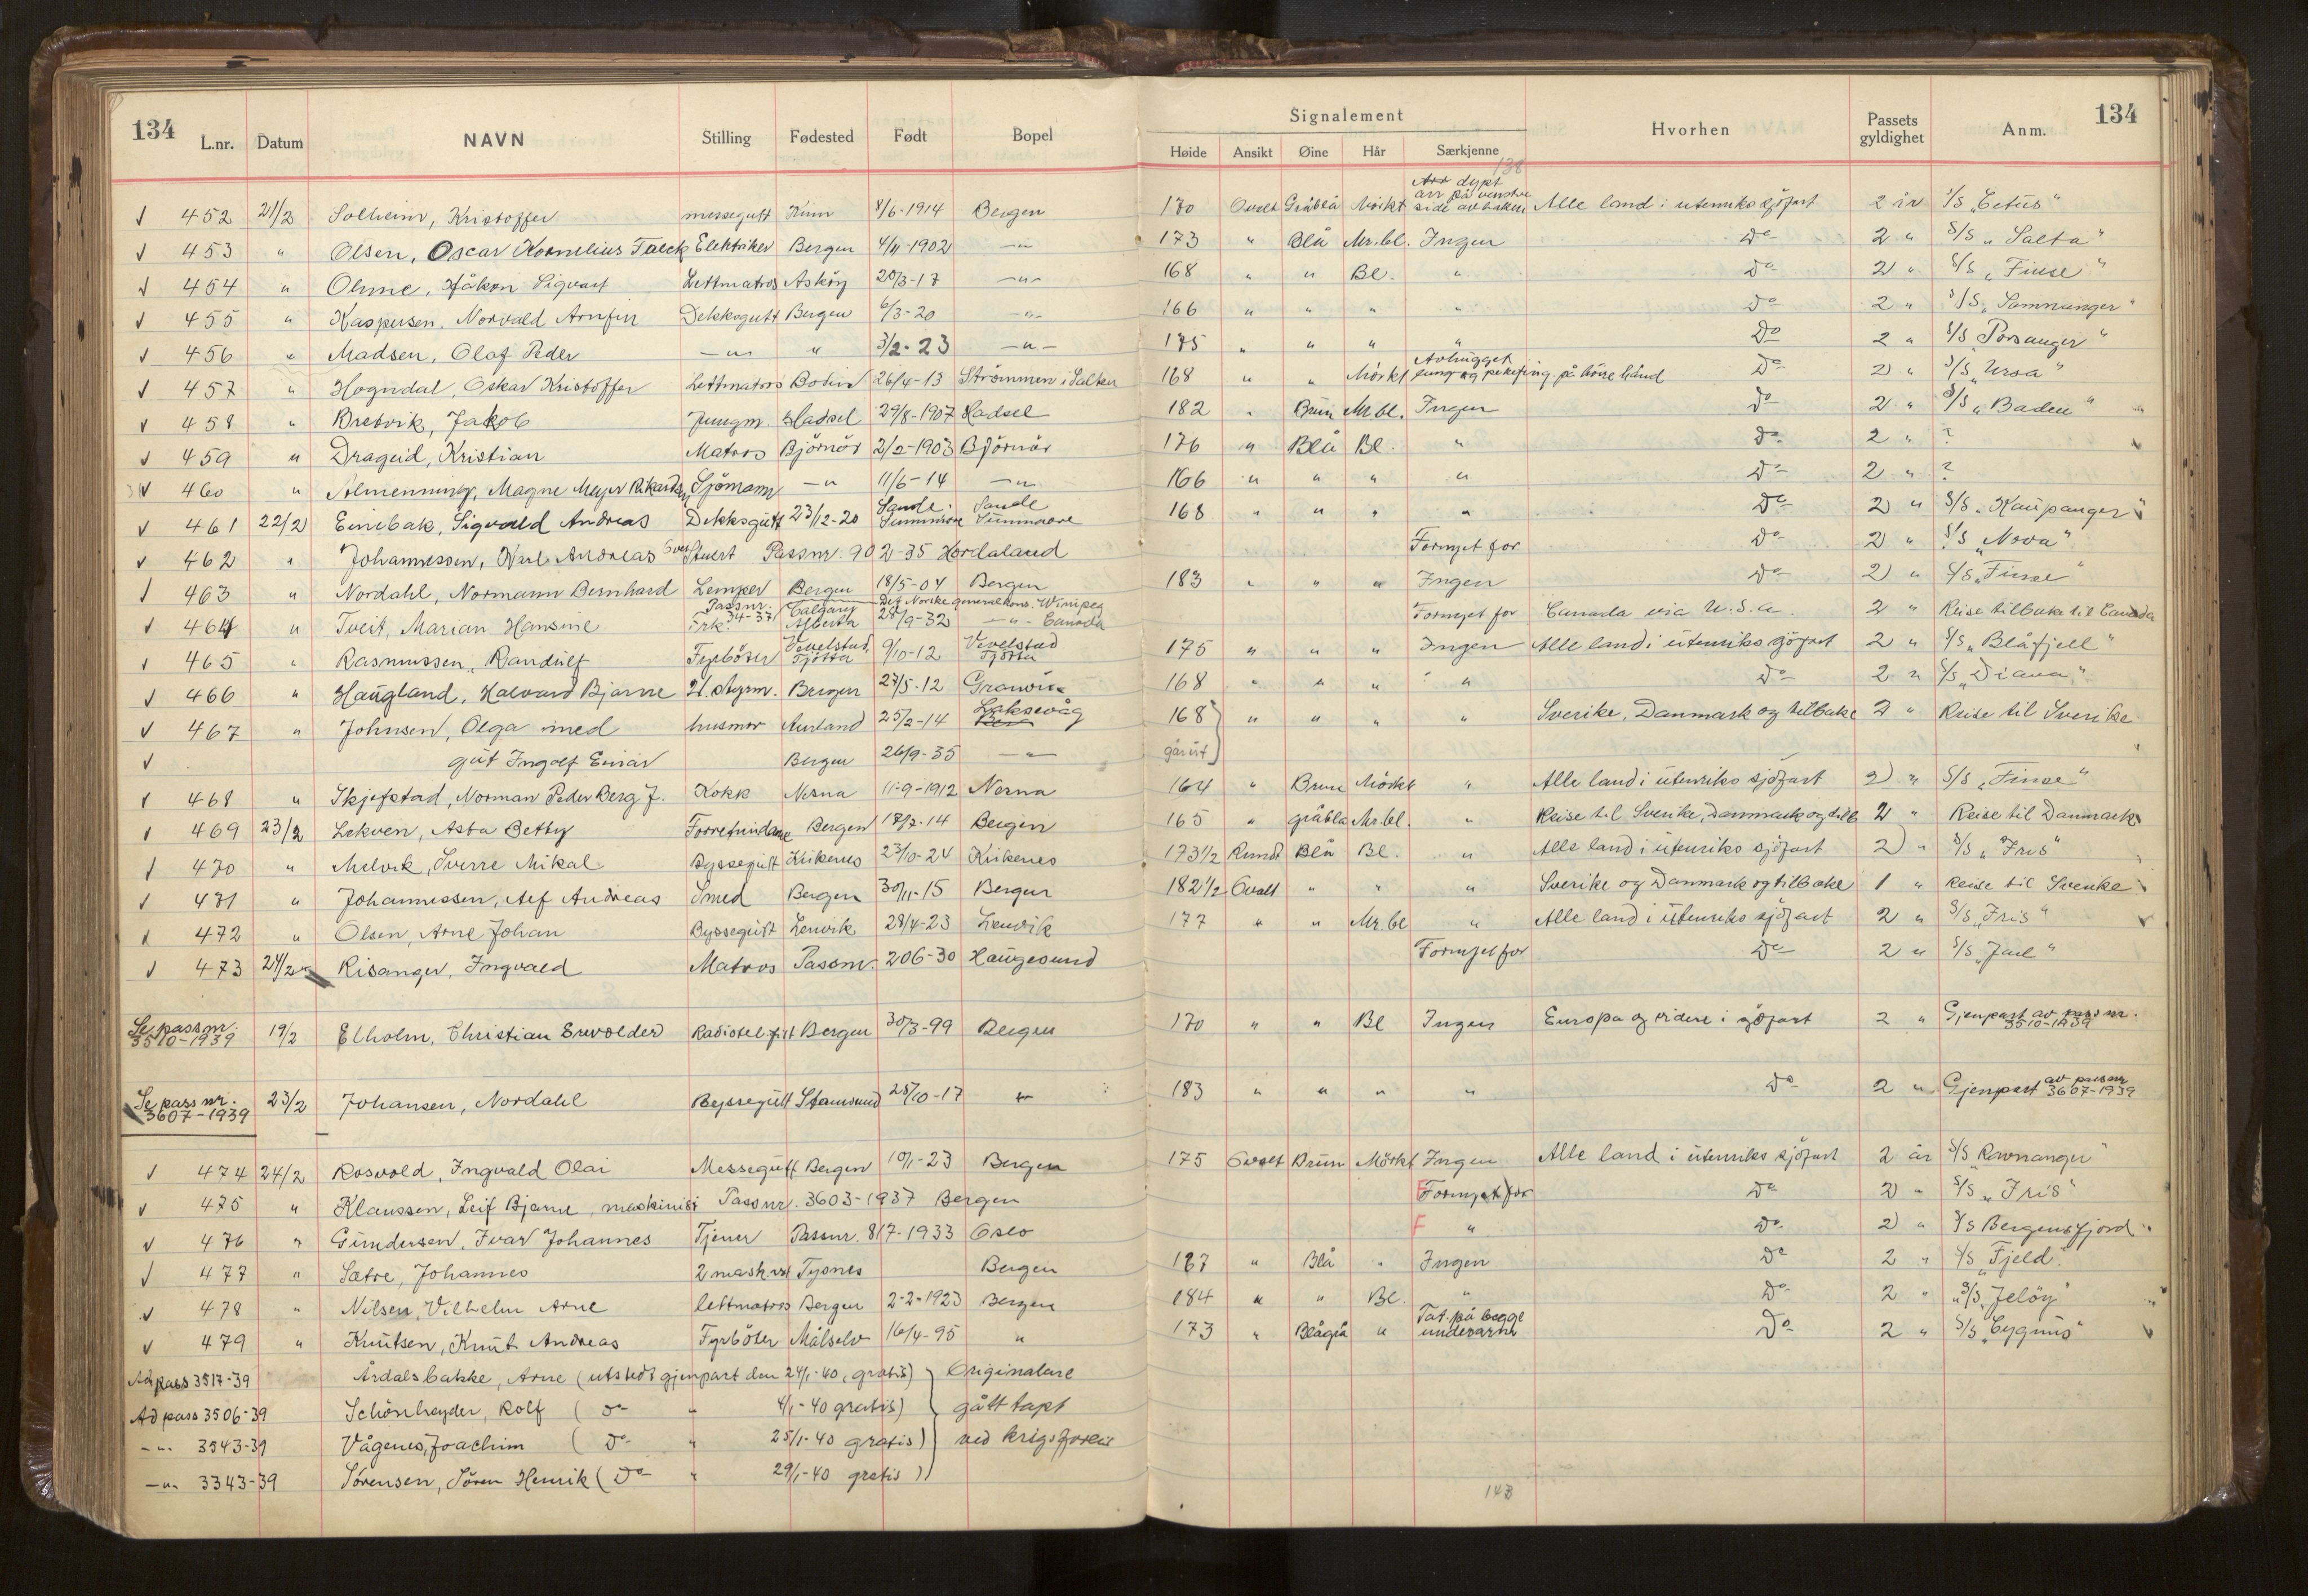 134 L.nr. Datum NAVN Stilling Fødested Født Bopel
Signalement
Høide Ansikt Øine Hår Særkjenne Hvorhen Passets gyldighet Anm. 134
138
452 21/2 Solheim, Kristoffer messegutt Kinn 8/6-1914 Bergen 170 Ovalt Gråblå Mörkt dypt arr på venstre side av Alle land i utenriks sjöfart 2 år S/S „Cetus"
453 " Olsen, Oscar Kornelius Falck Elektriker Bergen 4/11-1902 -"- 173 " Blå Mr.bl. Ingen Do 2 " S/S „Salta"
454 " Olsine, Håkon Sigvart Lettmatros Asköy 20/3-17 -"- 168 " " Bl. " Do 2 " S/S „Finse"
455 " Kaspersen, Norvald Arnfin Dekksgutt Bergen 6/3-20 -"- 166 " " " " Do 2 " S/S „Samnanger"
456 " Madsen, Olaf Peder -"- " 3/2-23 -"- 175 " " " " Do 2 " S/S Porsanger"
457 " Hogndal, Oskar Kristoffer Lettmatros Bodin 26/4-13 Strömmen i Salten 168 " " Mörkt Avhugget pekefing. på höire hånd Do 2 " S/S „Ursa"
458 " Bretvik, Jakob Jungm. Hadsel 29/8-1907 Hadsel 182 " Brun Mr.bl. Ingen Do 2 " S/S „Baden"
459 " Drageid, Kristian Matros Björnör 2/2-1903 Björnör 176 " Blå Bl. " Do 2 " ?
460 " Almenning, Magne Meyer Rikardsen Sjömann -"- 11/6-14 -"- 166 " " " " Do 2 " ?
461 22/2 Einebak, Sigvald Andreas Dekksgutt 23/12-20 Sande Sunnmöre Sande Sunnmöre 168 " " " " Do 2 " S/S „Kaupanger"
462 " Johannessen, Karl Andreas Stuert Passnr. 902-35 Hordaland Fornyet for Do 2 " S/S „Nova"
463 " Nordahl, Normann Bernhard Lemper Bergen 18/5-04 Bergen 183 " " " Ingen Do 2 " S/S „Finse"
464 " Tveit, Marian Hansine frk. Passnr. 34-37 Calgary Alberta 28/9-32 Det Norske generalkons. Winipeg -"- Canada Fornyet for Canada via U.S.A. 2 " Reise tilbake til Canada
465 " Rasmussen, Randulf Fyrböter Vevelstad Tjötta 9/10-12 Vevelstad Tjötta 175 " " " Ingen Alle land i utenriks sjöfart 2 " S/S „Blåfjell"
466 " Haugland, Halvard Bjarne 2. styrm. Bergen 27/5-12 Granvin 168 " " " " Do 2 " S/S „Diana"
467 " Johnsen, Olga med husmor Aurland 25/2-14 Laksevåg 168 " " " " Sverike, Danmark og tilbake 2 " Reise til Sverike
gut Ingolf Einar Bergen 26/9-35 -"-
468 " Skjefstad, Norman Peder Berg J. Kokk Nesna 11-9-1912 Nesna 164 " Brune Mörkt " Alle land i utenriks sjöfart 2 " S/S „Finse"
469 23/2 Lekven, Asta Betty Bergen 18/2-14 Bergen 165 " gråblå Mr.bl. " Reise til Sverike, Danmark og tilb 2 " Reise til Danmark
470 " Melvik, Sverre Mikal Byssegutt Kirkenes 23/10-24 Kirkenes 173 1/2 Rundt Blå Bl. " Alle land i utenriks sjöfart 2 " S/S „Iris"
471 " Johannessen, Alf Andreas Smed Bergen 30/11-15 Bergen 182 1/2 Ovalt " " " Sverike og Danmark og tilbake 1 " Reise til Sverike
472 " Olsen, Arne Johan Byssegutt Lenvik 28/4-23 Lenvik 177 " " Mr.bl " Alle land i utenriks sjöfart 2 " S/S „Iris"
473 24/2 Risanger, Ingvald Matros Passnr. 206-30 Haugesund Fornyet for Do 2 " S/S „Jarl"
Se passnr. 3510-1939 19/2 Elholm, Christian Radiotel.gist Bergen 30/3-99 Bergen 170 " " Bl Ingen Europa og videre i sjöfart 2 " Gjenpart av passnr. 3510-1939
Se pass nr. 3607-1939 23/2 Johansen, Nordahl Byssegutt Stamsund 28/10-17 " 183 " " " " Do 2 " Gjenpart av passnr 3607-1939
474 24/2 Rosvold, Ingvald Olai Messegutt Bergen 10/1-23 Bergen 175 Ovalt Brun Mörkt Ingen Alle land i utenriks sjöfart 2 år S/S „Ravnanger"
475 " Klaussen, Leif Bjarne, maskinist Passnr. 3603-1937 Bergen Fornyet for Do 2 " S/S „Iris"
476 " Gundersen, Ivar Johannes Tjener Passnr. 817-1933 Oslo F " Do 2 " S/S Bergensfjord
477 " Sætre, Johannes 2 mask. Tysnes Bergen 187 " Blå " Ingen Do 2 " S/S „Fjeld"
478 " Nilsen, Vilhelm Arne lettmatros Bergen 2-2-1923 Bergen 184 " " Bl. " Do 2 " S/S „Jelöy"
479 " Knutsen, Knut Andreas Fyrböter Målselv 16/4-95 " 173 " Blågrå " Tat. på begge underarme Do 2 " S/S „Cygnus"
Ad pass 3517-39 Årdalsbakke, Arne (utstedt gjenpart den 24/1-40, gratis) Originalene
Ad pass 3506-39 Schönheyder, Rolf ( Do " 4/1-40 gratis) gått tapt
-"- 3543-39 Vågenes, Joachim ( Do " 25/1-40 gratis) ved krigsforlis
-"- 3343-39 Sörensen, Sören Henrik ( Do " 29/1-40 gratis)
143